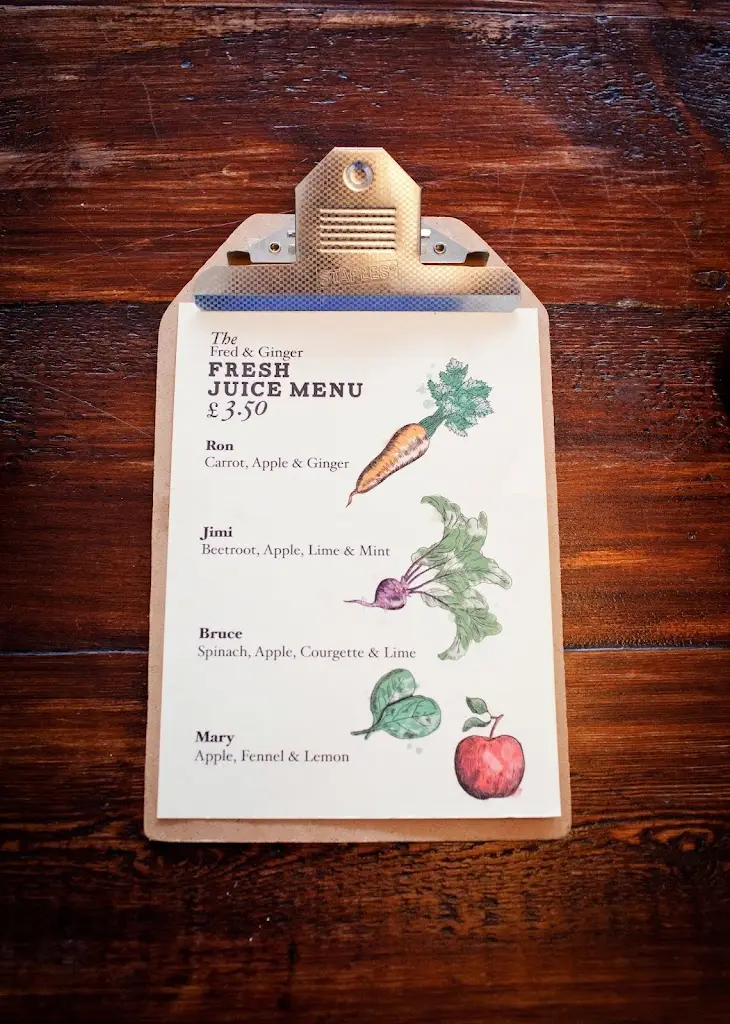 STAPLES
The
Fred & Ginger
FRESH
JUICE MENU
£ 3.50
Ron
Carrot, Apple & Ginger
Jimi
Beetroot, Apple, Lime & Mint
Bruce
Spinach, Apple, Courgette & Lime
Mary
Apple, Fennel & Lemon